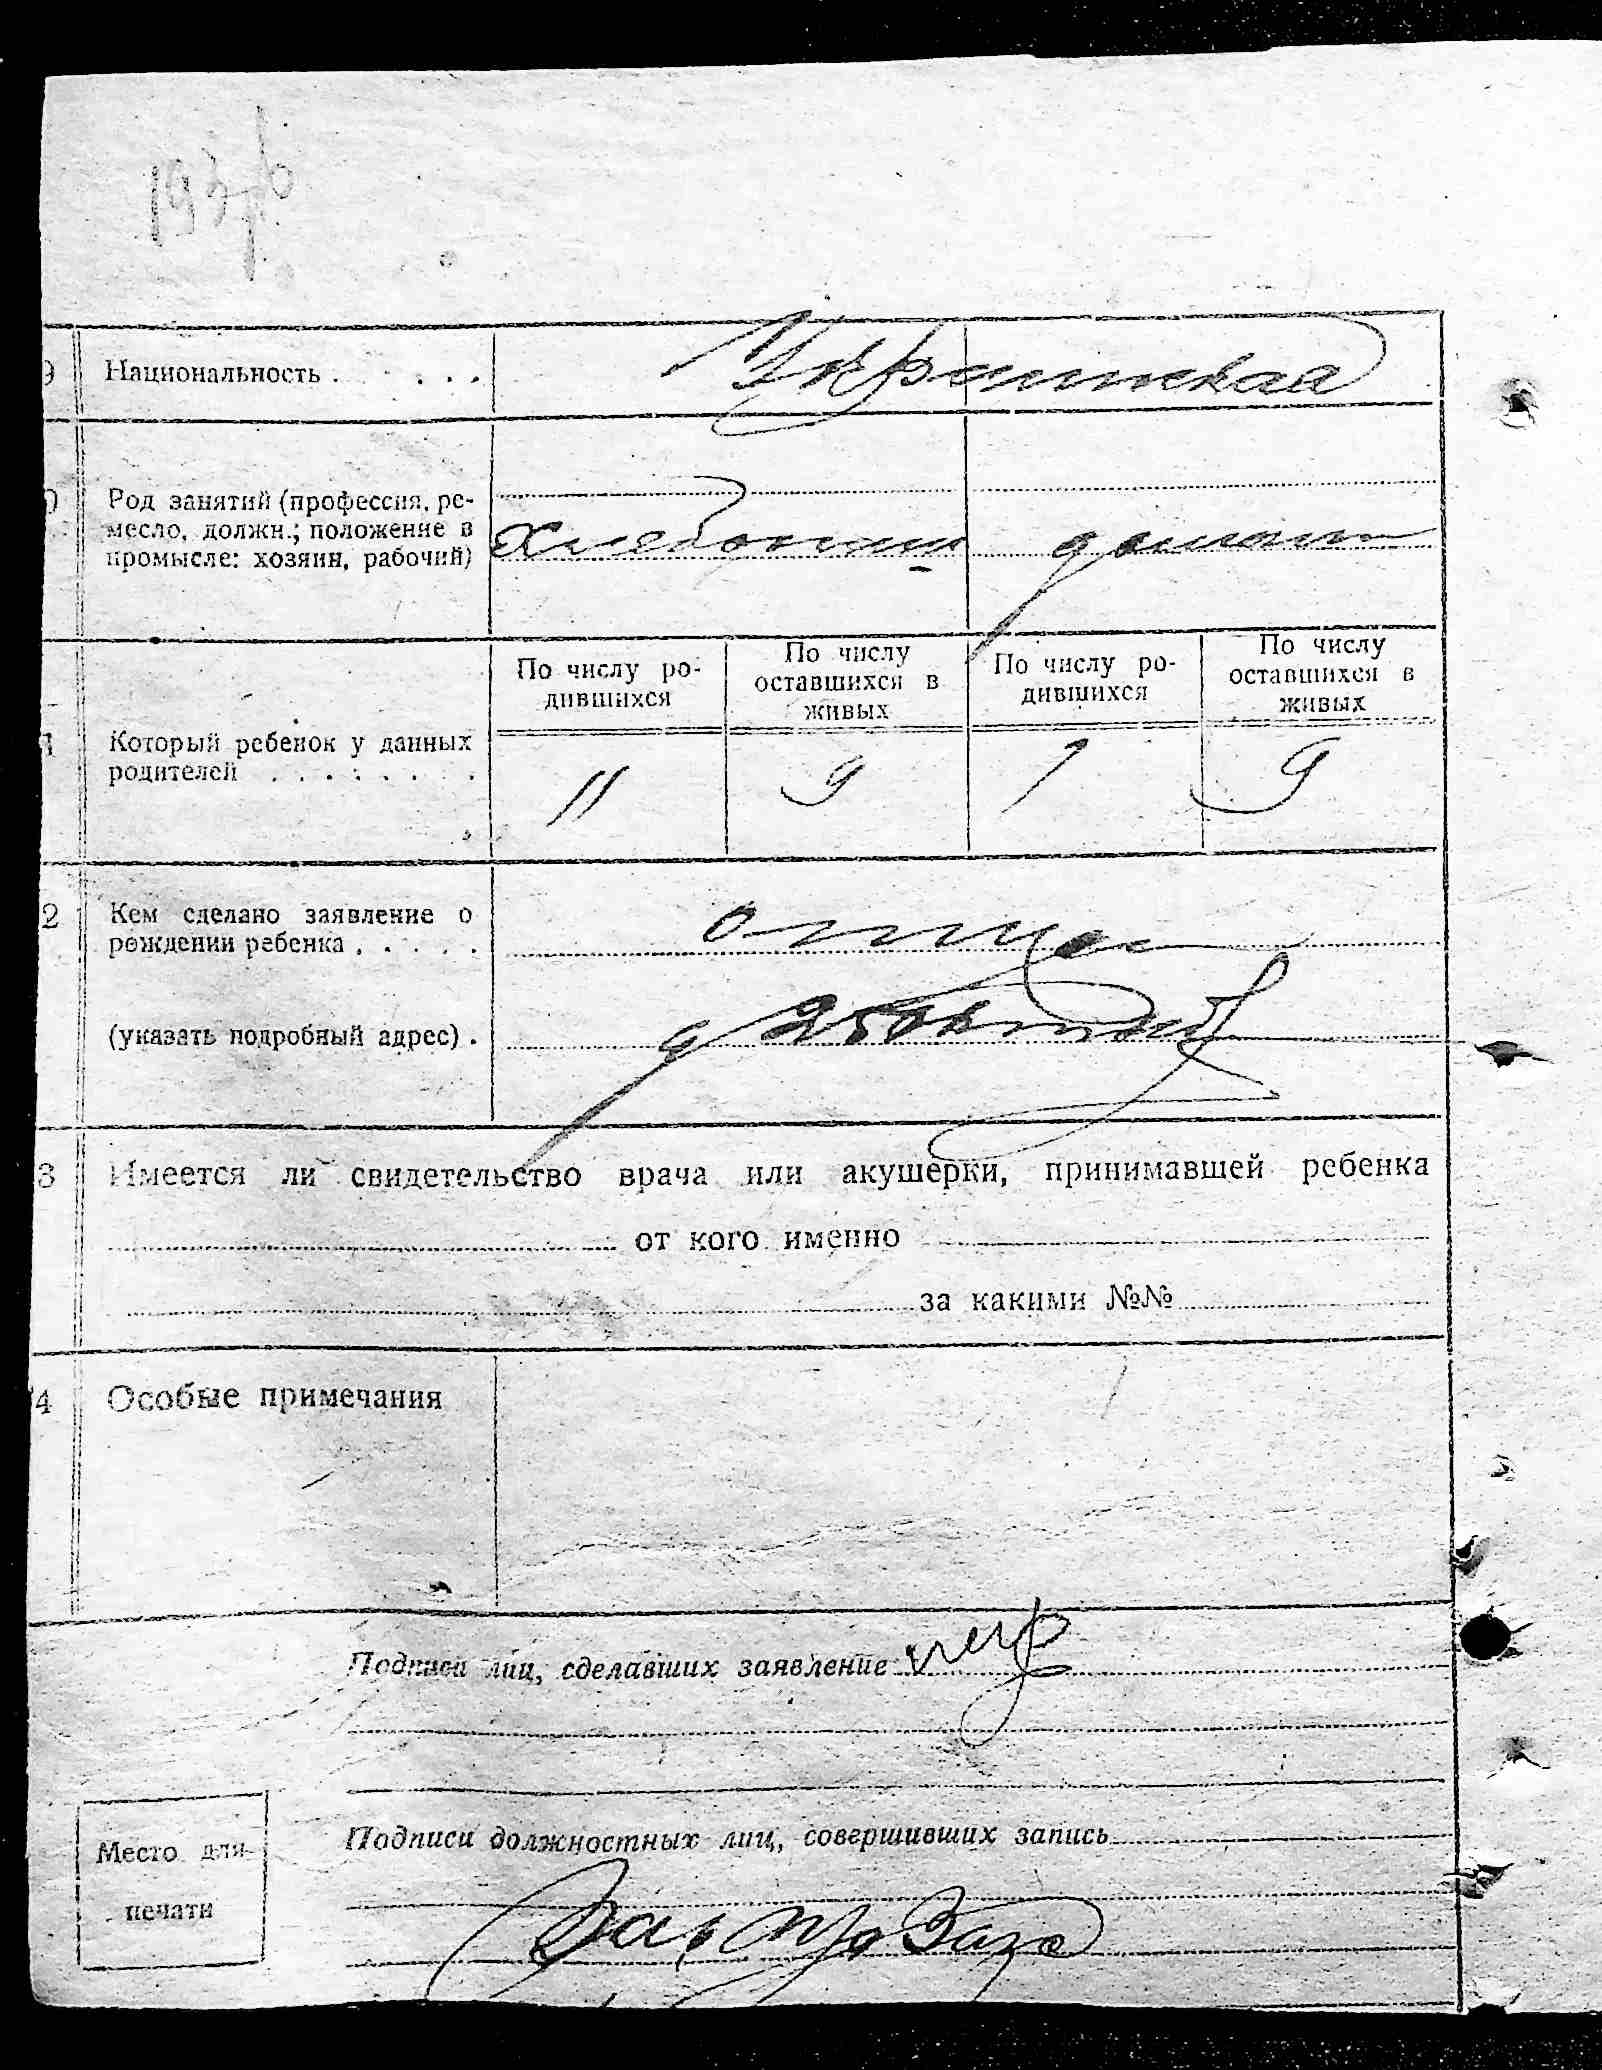 9 Национальность . . . . . Украинская
Род занятий (профессия, ре-
месло, должн.; положение в
промысле: хозяин, рабочий)
По числу ро-
дившихся
По числу
оставшихся в
живых
По числу ро-
дившихся
По числу
оставшихся в
живых
Который ребенок у данных
родителей . . . . . . . .
11 9 9
2 Кем сделано заявление о
рождении ребенка . . . . .
отцом
(указать подробный адрес) .
3 Имеется ли свидетельство врача или акушерки, принимавшей ребенка
от кого именно
за какими №№
4 Особые примечания
Подписи лиц, сделавших заявление
Подписи должностных лиц, совершивших запись
Место для
печати